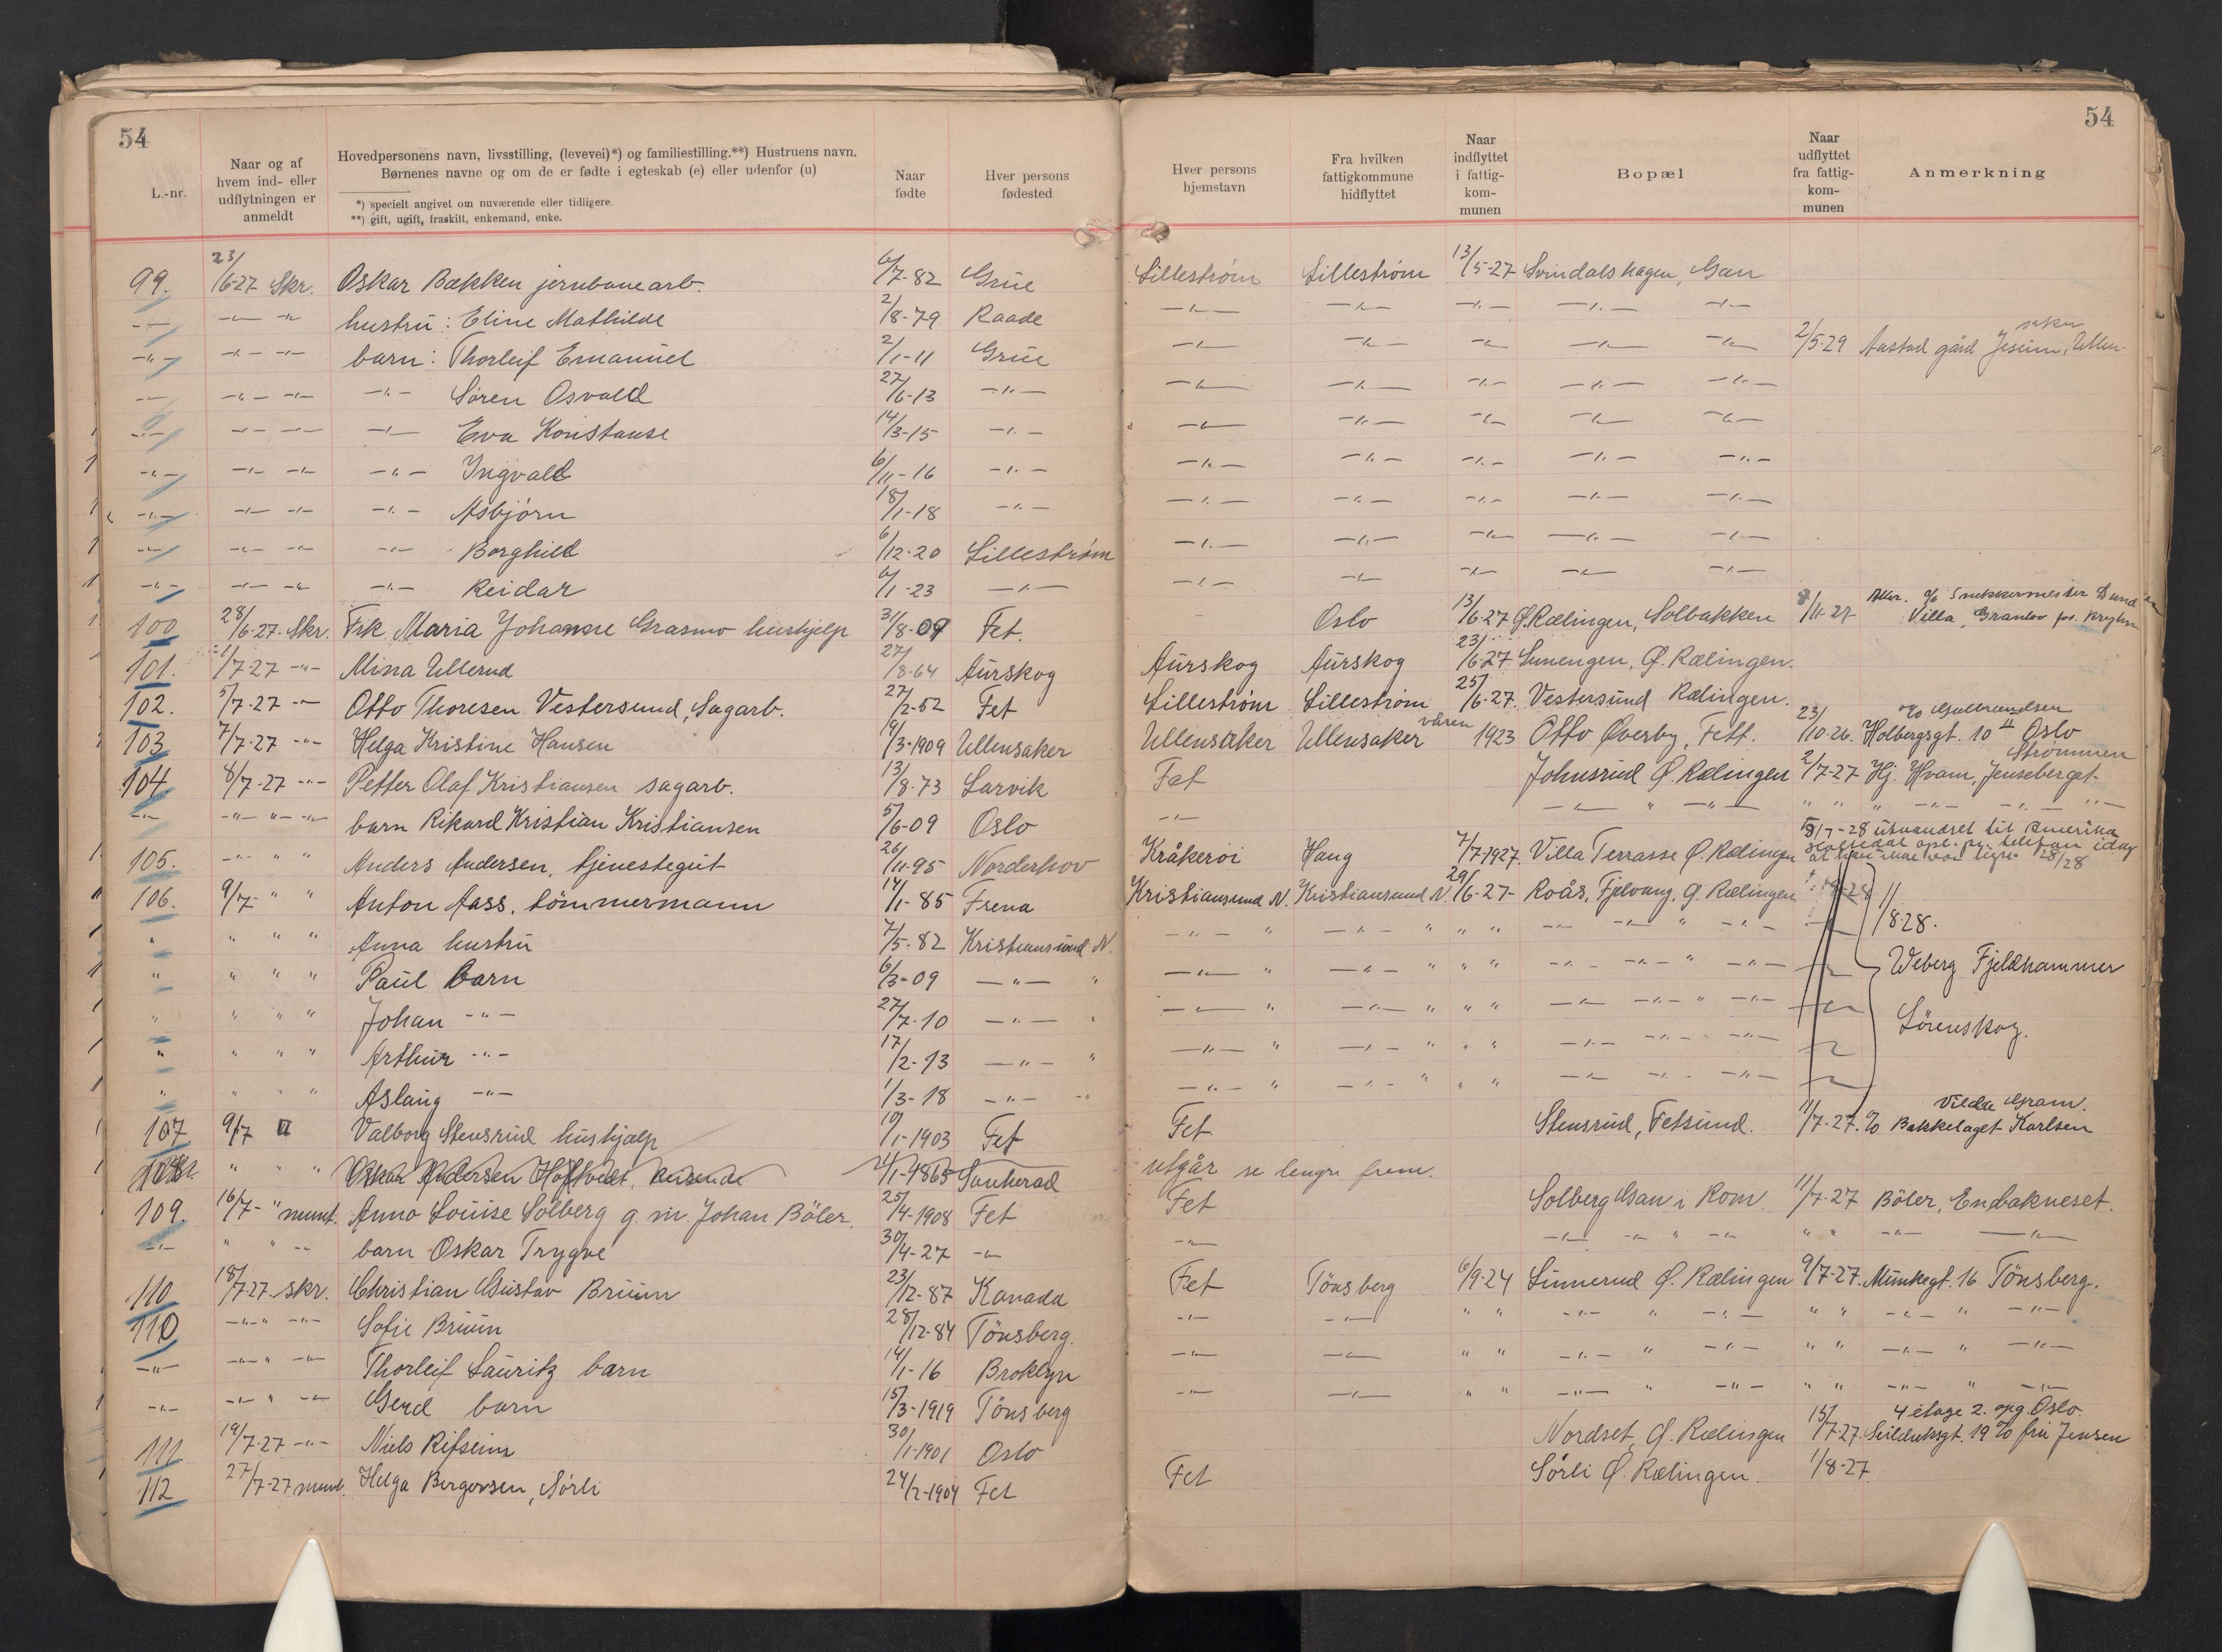 54
54
L.-nr.
Naar og af hvem ind- eller udflytningen er anmeldt
Hovedpersonens navn, livsstilling, (levevei)*) og familiestilling.**) Hustruens navn. Børnenes navne og om de er fødte i egteskab (e) eller udenfor (u)
*) specielt angivet om nuværende eller tidligere.
**) gift, ugift, fraskilt, enkemand, enke.
Naar fødte
Hver persons fødested
Hver persons hjemstavn
Fra hvilken fattigkommune hidflyttet
Naar indflyttet i fattig-kom-munen
Bopæl
Naar udflyttet fra fattig-kom-munen
Anmerkning
99. 23/6-27 Skr. Oskar Bakken jernbanearb. 6/7-82 Grue Lillestrøm Lillestrøm 13/5-27 Svindalshagen, Gan
-"- -"- -"- hustru: Eline Mathilde 2/8-79 Raade -"- -"- -"- -"- -"-
-"- -"- -"- barn: Thorleif Emanuel 2/1-11 Grue -"- -"- -"- -"- -"- 2/5-29 Aastad gård Jeseim, Ullensaker
-"- -"- -"- -"- Søren Osvald 27/6-13 -"- -"- -"- -"- -"- -"-
-"- -"- -"- -"- Eva Konstanse 14/3-15 -"- -"- -"- -"- -"- -"-
-"- -"- -"- -"- Ingvald 6/11-16 -"- -"- -"- -"- -"- -"-
-"- -"- -"- -"- Asbjørn 18/1-18 -"- -"- -"- -"- -"- -"-
-"- -"- -"- -"- Borghild 6/12-20 Lillestrøm -"- -"- -"- -"- -"-
-"- -"- -"- -"- Reidar 6/1-23 -"- -"- -"- -"- -"- -"-
100 28/6-27. Skr. Frk Maria Johanne Grasmo hushjelp 31/8-09 Fet. Oslo 13/6-27 Ø. Rælingen, Solbakken 8/11-27 c/o Snekkermester Villa,
101. 1/7-27 -"- Mina Ullerud 27/8-64 Aurskog Aurskog Aurskog 23/6-27 Ø. Rælingen.
102. 5/7-27 -"- Otto Thoresen Vestersund, Sagarb. 27/2-52 Fet Lillestrøm Lillestrøm 25/6-27. Vestersund Rælingen.
103 7/7-27 -"- Helga Kristine Hansen 9/3-1909 Ullensaker Ullensaker Ullensaker våren 1923 Otto Øverby, Fett. 23/10-26. Holbergsgt. 10 II Oslo
104 8/7-27 -"- Petter Olaf Kristiansen sagarb. 13/8-73 Larvik Fet Johnsrud Ø. Rælingen 2/7-27 Hj. Hvam, Jenseberget Strømmen
-"- -"- " -"- barn Rikard Kristian Kristiansen 5/6-09 Oslo -"- -"- " -"- " " " -"- -"- "-
105. -"- " " Anders Andersen, tjenestegut 26/11-95 Norderhov Kråkerøi Haug 7/7-1927. Villa Terrasse Ø. Rælingen 8/7-28 utvandret til Amerika opl. pr. telefon idag at 28/28
106. 9/7- " " Anton Aass, tömmermann 14/1-85 Frena Kristiansund N. Kristiansund N. 29/6-27- Roås, Fjelvang, Ø. Rælingen 11/8-28.
" " " " Anna hustru 7/5-82 Kristiansund N. -"- " -"- " " " -"- -"- " -"-
" " " " Paul barn 6/3-09 -"- " -"- " -"- " " " -"- -"- " -"- Weberg Fjeldhammer
" " " " Johan -"- 27/7-10 -"- " -"- " -"- " " " -"- -"- " -"- Lörenskog.
" " " " Arthur -"- 17/2-13 -"- " -"- " -"- " " " -"- -"- " -"-
" " " " Aslaug -"- 1/3-18 -"- " -"- " -"- " " " -"- -"- -"-
107 9/7 " Valborg Stensrud hushjælp 19/1-1903 Fet Fet Stensrud, Fetsund. 11/7-27. c/o Bakkelaget Karlsen
108. " " " Oskar Andersen Hoftvedt, Sauherad utgår se lengre frem.
109. 16/7- " munt. Anna Louise Solberg g. m. Johan Böler. 25/4-1908 Fet Fet Solberg Gan i Rom. 11/7-27 Böler, Enebakneset.
-"- " " -"- barn Oskar Trygve 30/4-27 -"- -"- -"- -"- " -"- " " -"- -"-
110 18/7-27. skr. Christian Gustav Bruun 23/12-87 Kanada Fet Tönsberg 6/9-24 Linnerud Ø. Rælingen 9/7-27. Munkegt. 16 Tönsberg.
110 -"-" -"- Sofie Bruun 28/12-84 Tönsberg. -"- -"- " " -"- " -"- " " -"- " -"-
-"- -"-" -"- Thorleif Lauritz barn 14/1-16 Broklyn -"- -"- " " -"- " -"- " " -"- " -"-
-"- -"-" -"- Gerd barn 15/3-1919 Tönsberg -"- -"- " " -"- " -"- " " -"- " -"-
111. 19/7-27 -"- Niels Rifseim 30/1-1901 Oslo Nordset, Ø. Rælingen 15/7-27. Seilduksgt. 19 c/o fru Jensen 4 etage 2. opg. Oslo.
112 27/7-27 munt. Helga Bergersen, Sørli 24/2-1904 Fet Fet Sørli Ø. Rælingen. 1/8-27.